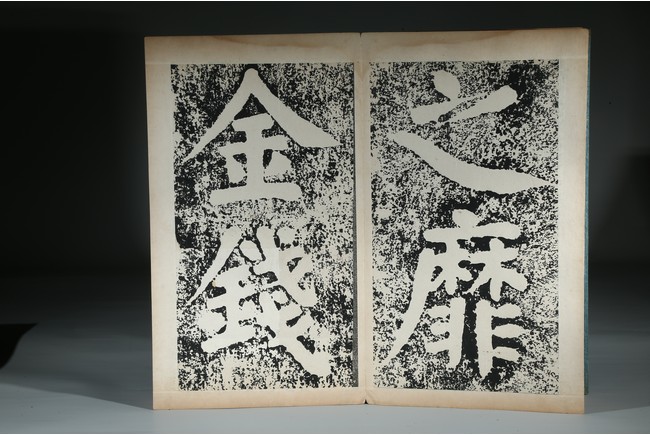 之靡
金錢